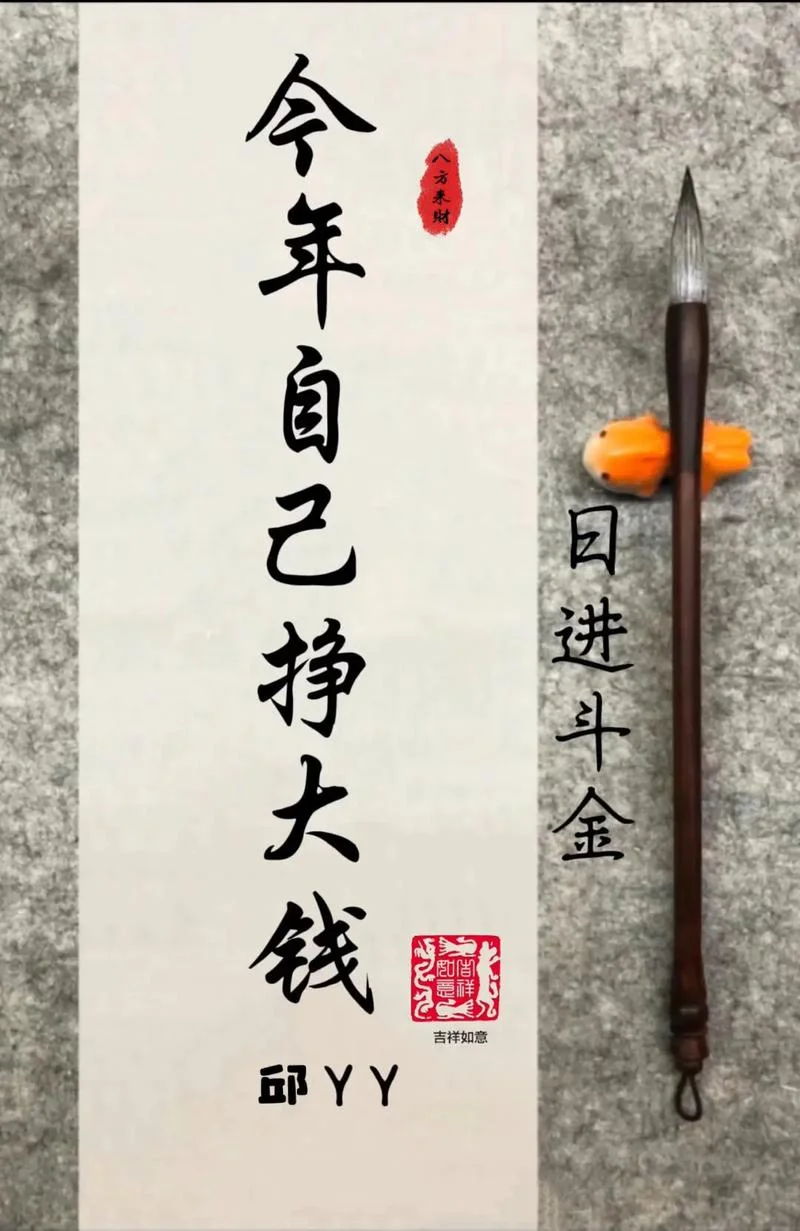 今年自己挣大钱
八方来财
日进斗金
吉祥如意
吉祥如意
邱丫丫